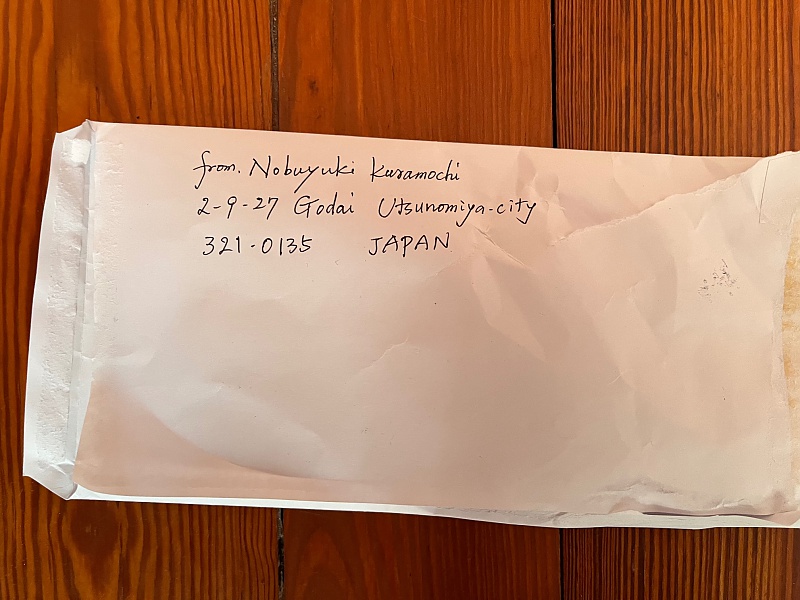 from. Nobuyuki Kuramochi
2-9-27 Godai Utsunomiya-city
321-0135 JAPAN